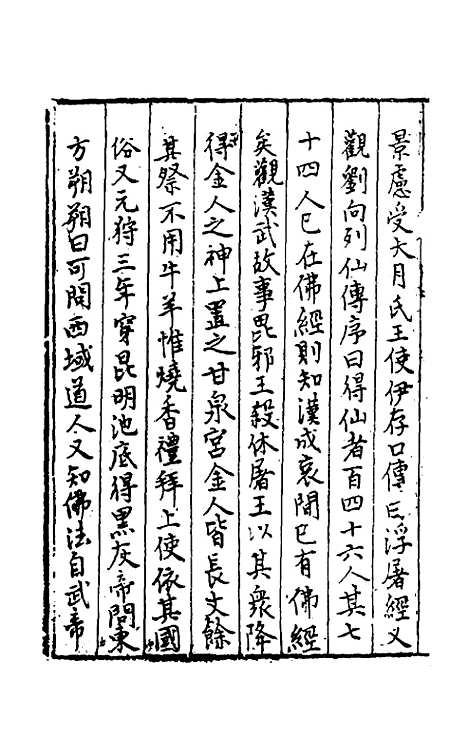 景慮受大月氏王使伊存口傳曰浮屠經又
觀劉向列仙傳序曰得仙者百四十六人其七
十四人已在佛經則知漢成哀間已有佛經
矣觀漢武故事毘邪王殺休屠王以其衆降
得金人之神上置之甘泉宮金人皆長丈餘
其祭不用牛羊惟燒香禮拜上使依其國
俗又元狩三年穿昆明池底得黑灰帝問東
方朔朔曰可問西域道人又知佛法自武帝